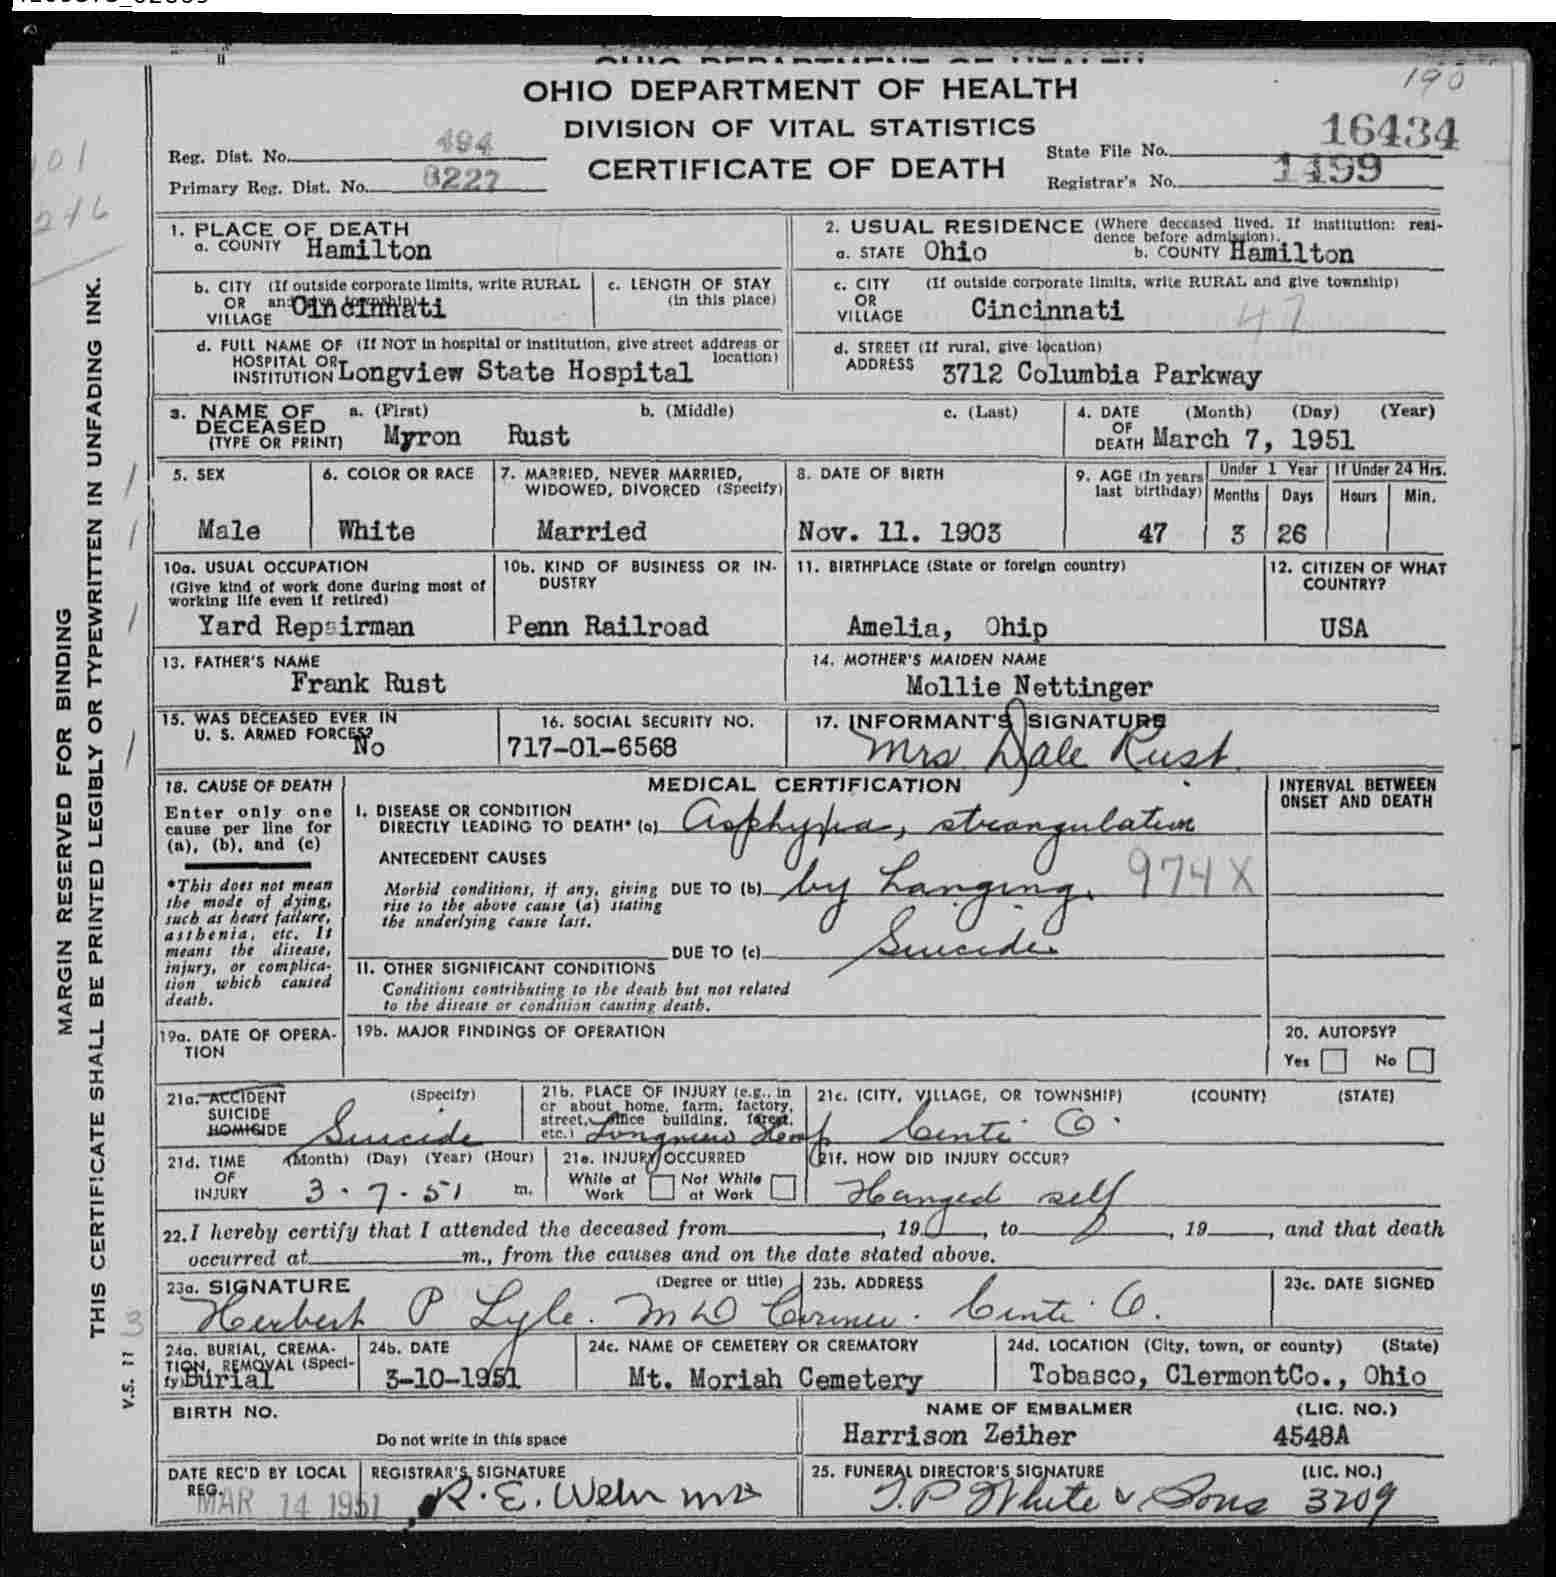 190
OHIO DEPARTMENT OF HEALTH
DIVISION OF VITAL STATISTICS
CERTIFICATE OF DEATH
Reg. Dist. No. 494
Primary Reg. Dist. No. 8227
State File No. 16434
Registrar's No. 1499
101
246
MARGIN RESERVED FOR BINDING
THIS CERTIFICATE SHALL BE PRINTED LEGIBLY OR TYPEWRITTEN IN UNFADING INK.
V.S. 11
3
1. PLACE OF DEATH
a. COUNTY Hamilton
2. USUAL RESIDENCE (Where deceased lived. If institution: resi-
dence before admission).
a. STATE Ohio b. COUNTY Hamilton
b. CITY (If outside corporate limits, write RURAL
OR and give township)
VILLAGE Cincinnati
c. LENGTH OF STAY
(in this place)
c. CITY (If outside corporate limits, write RURAL and give township)
OR
VILLAGE Cincinnati
47
d. FULL NAME OF (If NOT in hospital or institution, give street address or
HOSPITAL OR location)
INSTITUTION Longview State Hospital
d. STREET (If rural, give location)
ADDRESS 3712 Columbia Parkway
3. NAME OF a. (First) b. (Middle) c. (Last)
DECEASED
(TYPE OR PRINT) Myron Rust
4. DATE (Month) (Day) (Year)
OF
DEATH March 7, 1951
5. SEX
Male
6. COLOR OR RACE
White
7. MARRIED, NEVER MARRIED,
WIDOWED, DIVORCED (Specify)
Married
8. DATE OF BIRTH
Nov. 11. 1903
9. AGE (In years
last birthday)
47
Under 1 Year
Months Days
3 26
If Under 24 Hrs.
Hours Min.
10a. USUAL OCCUPATION
(Give kind of work done during most of
working life even if retired)
Yard Repairman
10b. KIND OF BUSINESS OR IN-
DUSTRY
Penn Railroad
11. BIRTHPLACE (State or foreign country)
Amelia, Ohip
12. CITIZEN OF WHAT
COUNTRY?
USA
13. FATHER'S NAME
Frank Rust
14. MOTHER'S MAIDEN NAME
Mollie Nettinger
15. WAS DECEASED EVER IN
U. S. ARMED FORCES?
No
16. SOCIAL SECURITY NO.
717-01-6568
17. INFORMANT'S SIGNATURE
Mrs Dale Rust
18. CAUSE OF DEATH
Enter only one
cause per line for
(a), (b), and (c)
*This does not mean
the mode of dying,
such as heart failure,
asthenia, etc. It
means the disease,
injury, or complica-
tion which caused
death.
MEDICAL CERTIFICATION
I. DISEASE OR CONDITION
DIRECTLY LEADING TO DEATH* (a) Asphyxia, strangulation
ANTECEDENT CAUSES
Morbid conditions, if any, giving DUE TO (b) by hanging. 974X
rise to the above cause (a) stating
the underlying cause last.
DUE TO (c) Suicide
II. OTHER SIGNIFICANT CONDITIONS
Conditions contributing to the death but not related
to the disease or condition causing death.
INTERVAL BETWEEN
ONSET AND DEATH
19a. DATE OF OPERA-
TION
19b. MAJOR FINDINGS OF OPERATION
20. AUTOPSY?
Yes No
21a. ACCIDENT (Specify)
SUICIDE
HOMICIDE Suicide
21b. PLACE OF INJURY (e.g., in
or about home, farm, factory,
street, office building, forest,
etc.) Longview Hosp
21c. (CITY, VILLAGE, OR TOWNSHIP) (COUNTY) (STATE)
Cinti O.
21d. TIME (Month) (Day) (Year) (Hour)
OF
INJURY 3 - 7 - 51 m.
21e. INJURY OCCURRED
While at Not While
Work at Work
21f. HOW DID INJURY OCCUR?
Hanged self
22. I hereby certify that I attended the deceased from , 19 , to , 19 , and that death
occurred at m., from the causes and on the date stated above.
23a. SIGNATURE (Degree or title)
Herbert P Lyle. MD Coroner.
23b. ADDRESS
Cinti O.
23c. DATE SIGNED
24a. BURIAL, CREMA-
TION, REMOVAL (Speci-
fy) Burial
24b. DATE
3-10-1951
24c. NAME OF CEMETERY OR CREMATORY
Mt. Moriah Cemetery
24d. LOCATION (City, town, or county) (State)
Tobasco, ClermontCo., Ohio
BIRTH NO.
Do not write in this space
NAME OF EMBALMER (LIC. NO.)
Harrison Zeiher 4548A
DATE REC'D BY LOCAL
REG.
MAR 14 1951
REGISTRAR'S SIGNATURE
R. E. Wehr MD
25. FUNERAL DIRECTOR'S SIGNATURE (LIC. NO.)
T.P White & Sons 3209